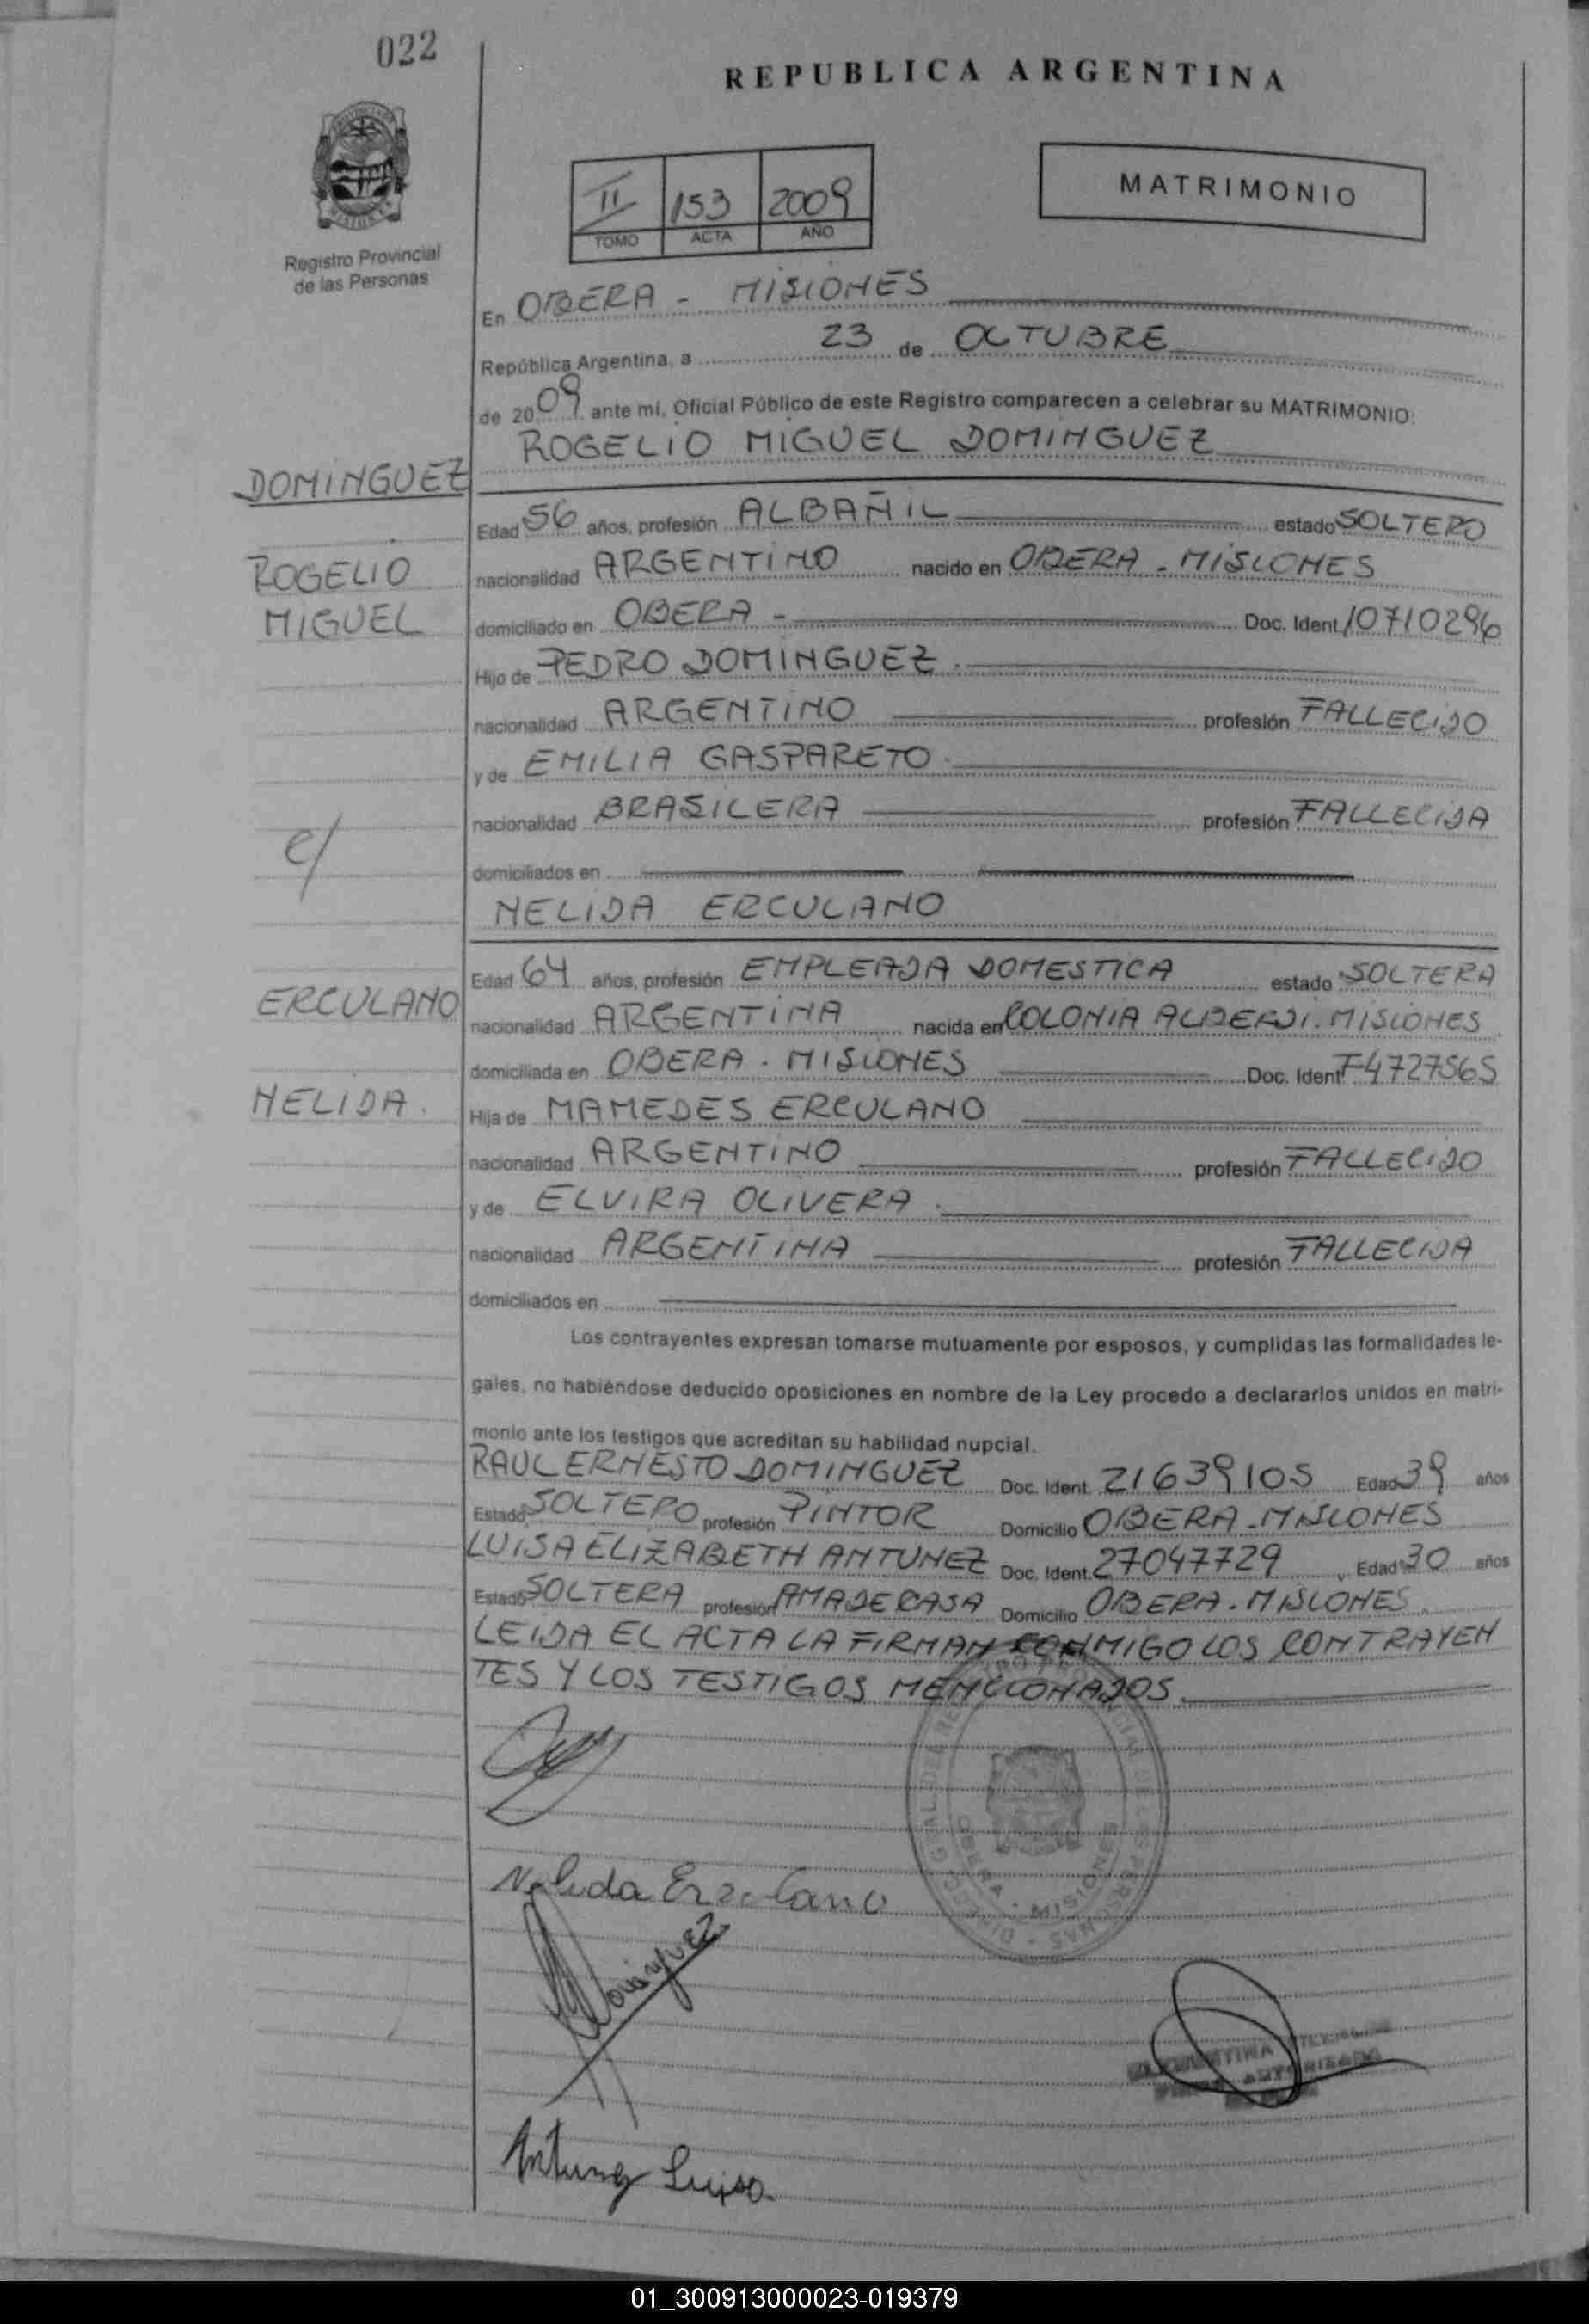 022
REPUBLICA ARGENTINA
Registro Provincial
de las Personas
II 153 2009
TOMO ACTA AÑO
MATRIMONIO
En OBERA - MISIONES
República Argentina, a 23 de OCTUBRE
de 2009 ante mí, Oficial Público de este Registro comparecen a celebrar su MATRIMONIO:
ROGELIO MIGUEL DOMINGUEZ
DOMINGUEZ
Edad 56 años, profesión ALBAÑIL estado SOLTERO
ROGELIO nacionalidad ARGENTINO nacido en OBERA - MISIONES
MIGUEL domiciliado en OBERA - Doc. Ident. 10710296
Hijo de PEDRO DOMINGUEZ.
nacionalidad ARGENTINO profesión FALLECIDO
y de EMILIA GASPARETO.
nacionalidad BRASILERA profesión FALLECIDA
c/
domiciliados en
NELIDA ERCULANO
Edad 64 años, profesión EMPLEADA DOMESTICA estado SOLTERA
ERCULANO nacionalidad ARGENTINA nacida en COLONIA ALBERDI. MISIONES
domiciliada en OBERA. MISIONES Doc. Ident F4727565
NELIDA. Hija de MAMEDES ERCULANO
nacionalidad ARGENTINO profesión FALLECIDO
y de ELVIRA OLIVERA.
nacionalidad ARGENTINA profesión FALLECIDA
domiciliados en
Los contrayentes expresan tomarse mutuamente por esposos, y cumplidas las formalidades le-
gales, no habiéndose deducido oposiciones en nombre de la Ley procedo a declararlos unidos en matri-
monio ante los testigos que acreditan su habilidad nupcial.
RAUL ERNESTO DOMINGUEZ Doc. Ident. 21639105 Edad 39 años
Estado SOLTERO profesión PINTOR Domicilio OBERA - MISIONES
LUISA ELIZABETH ANTUNEZ Doc. Ident. 27047729, Edad 30 años
Estado SOLTERA profesión AMA DE CASA Domicilio OBERA. MISIONES.
LEIDA EL ACTA LA FIRMAN CONMIGO LOS CONTRAYEN
TES Y LOS TESTIGOS MENCIONADOS.
OBERA - MISIONES
Nelida Erculano
Dominguez
Antunez Luisa.
01_300913000023-019379